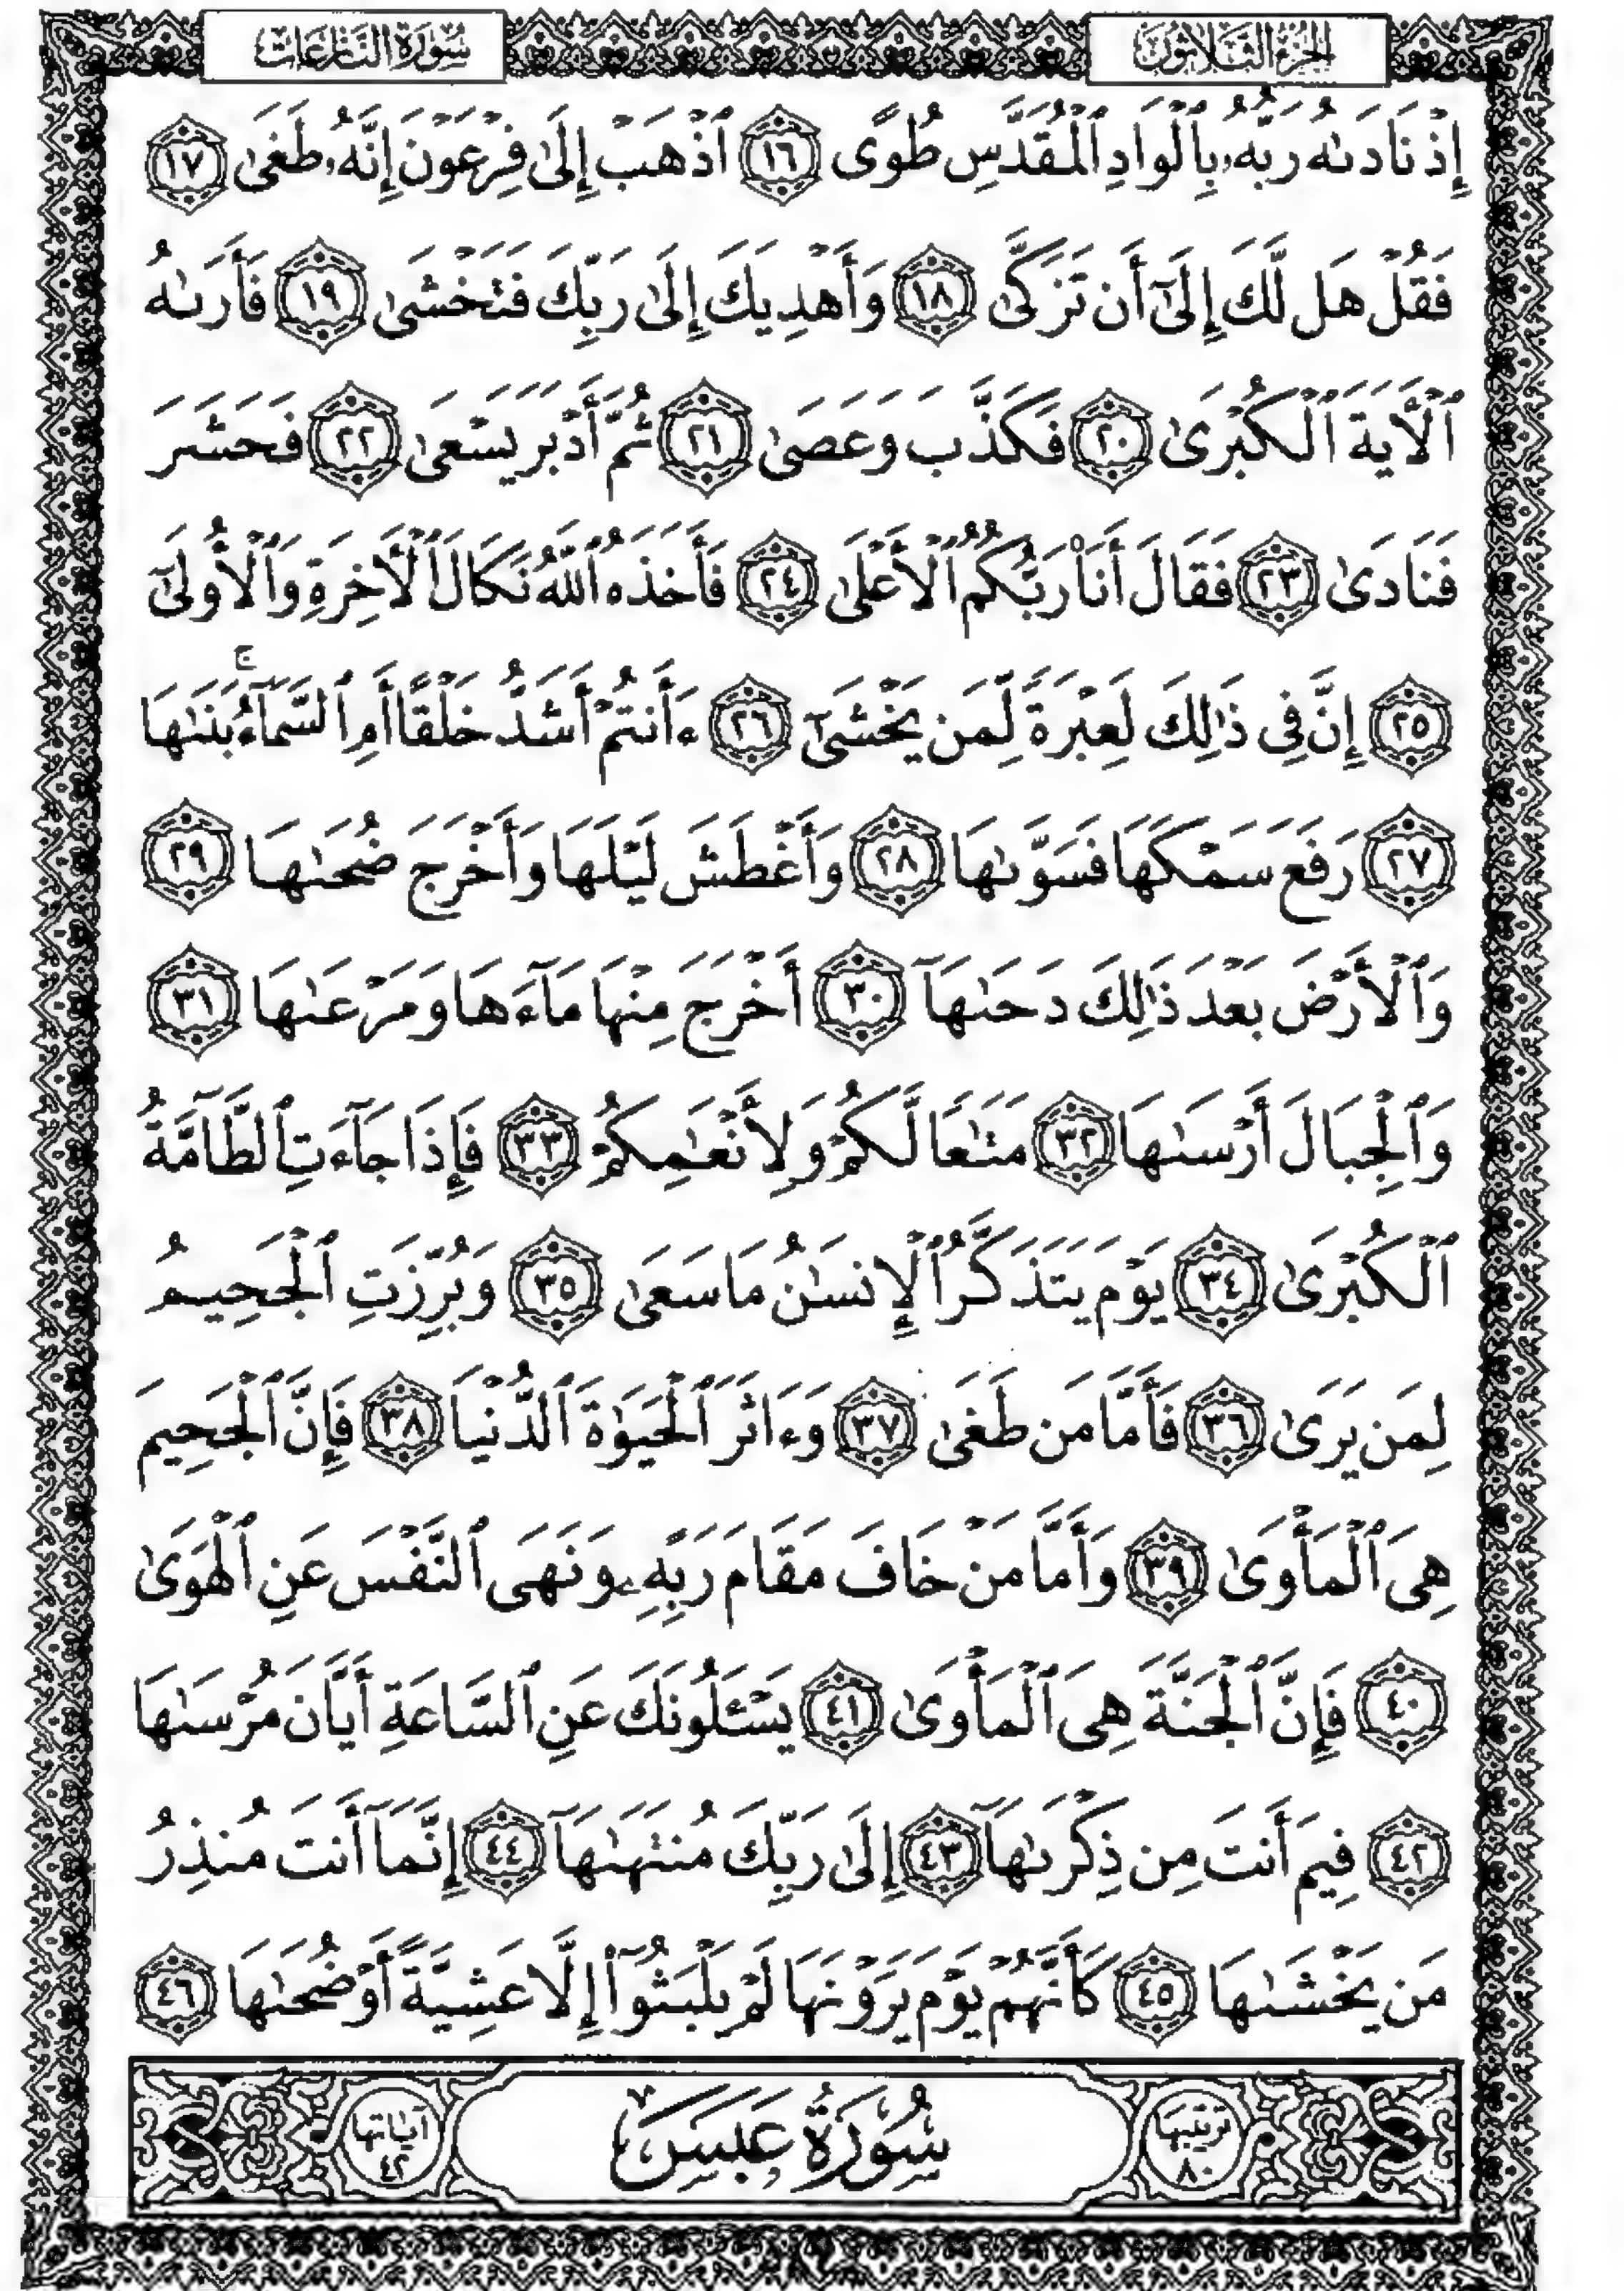 الجزء الثلاثون
سورة النازعات
إِذْ نَادَىٰهُ رَبُّهُۥ بِٱلْوَادِ ٱلْمُقَدَّسِ طُوًى ١٦ ٱذْهَبْ إِلَىٰ فِرْعَوْنَ إِنَّهُۥ طَغَىٰ ١٧
فَقُلْ هَل لَّكَ إِلَىٰٓ أَن تَزَكَّىٰ ١٨ وَأَهْدِيَكَ إِلَىٰ رَبِّكَ فَتَخْشَىٰ ١٩ فَأَرَىٰهُ
ٱلْأَيَةَ ٱلْكُبْرَىٰ ٢٠ فَكَذَّبَ وَعَصَىٰ ٢١ ثُمَّ أَدْبَرَ يَسْعَىٰ ٢٢ فَحَشَرَ
فَنَادَىٰ ٢٣ فَقَالَ أَنَا۠ رَبُّكُمُ ٱلْأَعْلَىٰ ٢٤ فَأَخَذَهُ ٱللَّهُ نَكَالَ ٱلْأَخِرَةِ وَٱلْأُولَىٰٓ
٢٥ إِنَّ فِى ذَٰلِكَ لَعِبْرَةً لِّمَن يَخْشَىٰٓ ٢٦ ءَأَنتُمْ أَشَدُّ خَلْقًا أَمِ ٱلسَّمَآءُ ۚ بَنَىٰهَا
٢٧ رَفَعَ سَمْكَهَا فَسَوَّىٰهَا ٢٨ وَأَغْطَشَ لَيْلَهَا وَأَخْرَجَ ضُحَىٰهَا ٢٩
وَٱلْأَرْضَ بَعْدَ ذَٰلِكَ دَحَىٰهَآ ٣٠ أَخْرَجَ مِنْهَا مَآءَهَا وَمَرْعَىٰهَا ٣١
وَٱلْجِبَالَ أَرْسَىٰهَا ٣٢ مَتَٰعًا لَّكُمْ وَلِأَنْعَٰمِكُمْ ٣٣ فَإِذَا جَآءَتِ ٱلطَّآمَّةُ
ٱلْكُبْرَىٰ ٣٤ يَوْمَ يَتَذَكَّرُ ٱلْإِنسَٰنُ مَا سَعَىٰ ٣٥ وَبُرِّزَتِ ٱلْجَحِيمُ
لِمَن يَرَىٰ ٣٦ فَأَمَّا مَن طَغَىٰ ٣٧ وَءَاثَرَ ٱلْحَيَوٰةَ ٱلدُّنْيَا ٣٨ فَإِنَّ ٱلْجَحِيمَ
هِىَ ٱلْمَأْوَىٰ ٣٩ وَأَمَّا مَنْ خَافَ مَقَامَ رَبِّهِۦ وَنَهَى ٱلنَّفْسَ عَنِ ٱلْهَوَىٰ
٤٠ فَإِنَّ ٱلْجَنَّةَ هِىَ ٱلْمَأْوَىٰ ٤١ يَسْـَٔلُونَكَ عَنِ ٱلسَّاعَةِ أَيَّانَ مُرْسَىٰهَا
٤٢ فِيمَ أَنتَ مِن ذِكْرَىٰهَآ ٤٣ إِلَىٰ رَبِّكَ مُنتَهَىٰهَآ ٤٤ إِنَّمَآ أَنتَ مُنذِرُ
مَن يَخْشَىٰهَا ٤٥ كَأَنَّهُمْ يَوْمَ يَرَوْنَهَا لَمْ يَلْبَثُوٓا۟ إِلَّا عَشِيَّةً أَوْ ضُحَىٰهَا ٤٦
ترتيبها ٨٠
سُورَةُ عَبَسَ
آياتها ٤٢